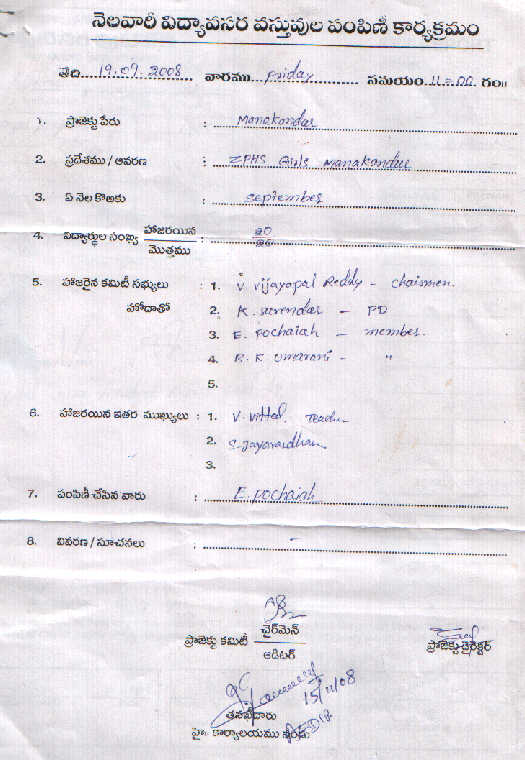 నెలవారీ విద్యావసర వస్తువుల పంపిణీ కార్యక్రమం
తేది 19.09.2008 వారము Friday సమయం 11-00 గం॥
1. ప్రాజెక్టు పేరు : Manakondur
2. ప్రదేశము / ఆవరణ : ZPHS Girls Manakondur
3. ఏ నెల కొఱకు : September
4. విద్యార్థుల సంఖ్య హాజరయిన : 20
మొత్తము 20
5. హాజరైన కమిటీ సభ్యులు : 1. V Vijayapal Reddy - chairmen.
హోదాతో 2. K. Surendar - PD
3. E. Pochaiah - member.
4. R. K - "
5.
6. హాజరయిన ఇతర ముఖ్యులు : 1. V. Vittal. Teacher
2. S. Jayavardhan
3.
7. పంపిణీ చేసిన వారు : E. Pochaiah
8. వివరణ / సూచనలు : -
ప్రాజెక్టు కమిటీ చైర్‌మెన్
ఆడిటర్
ప్రాజెక్టు డైరెక్టర్
15/11/08
తనిఖీదారు
కార్యాలయము